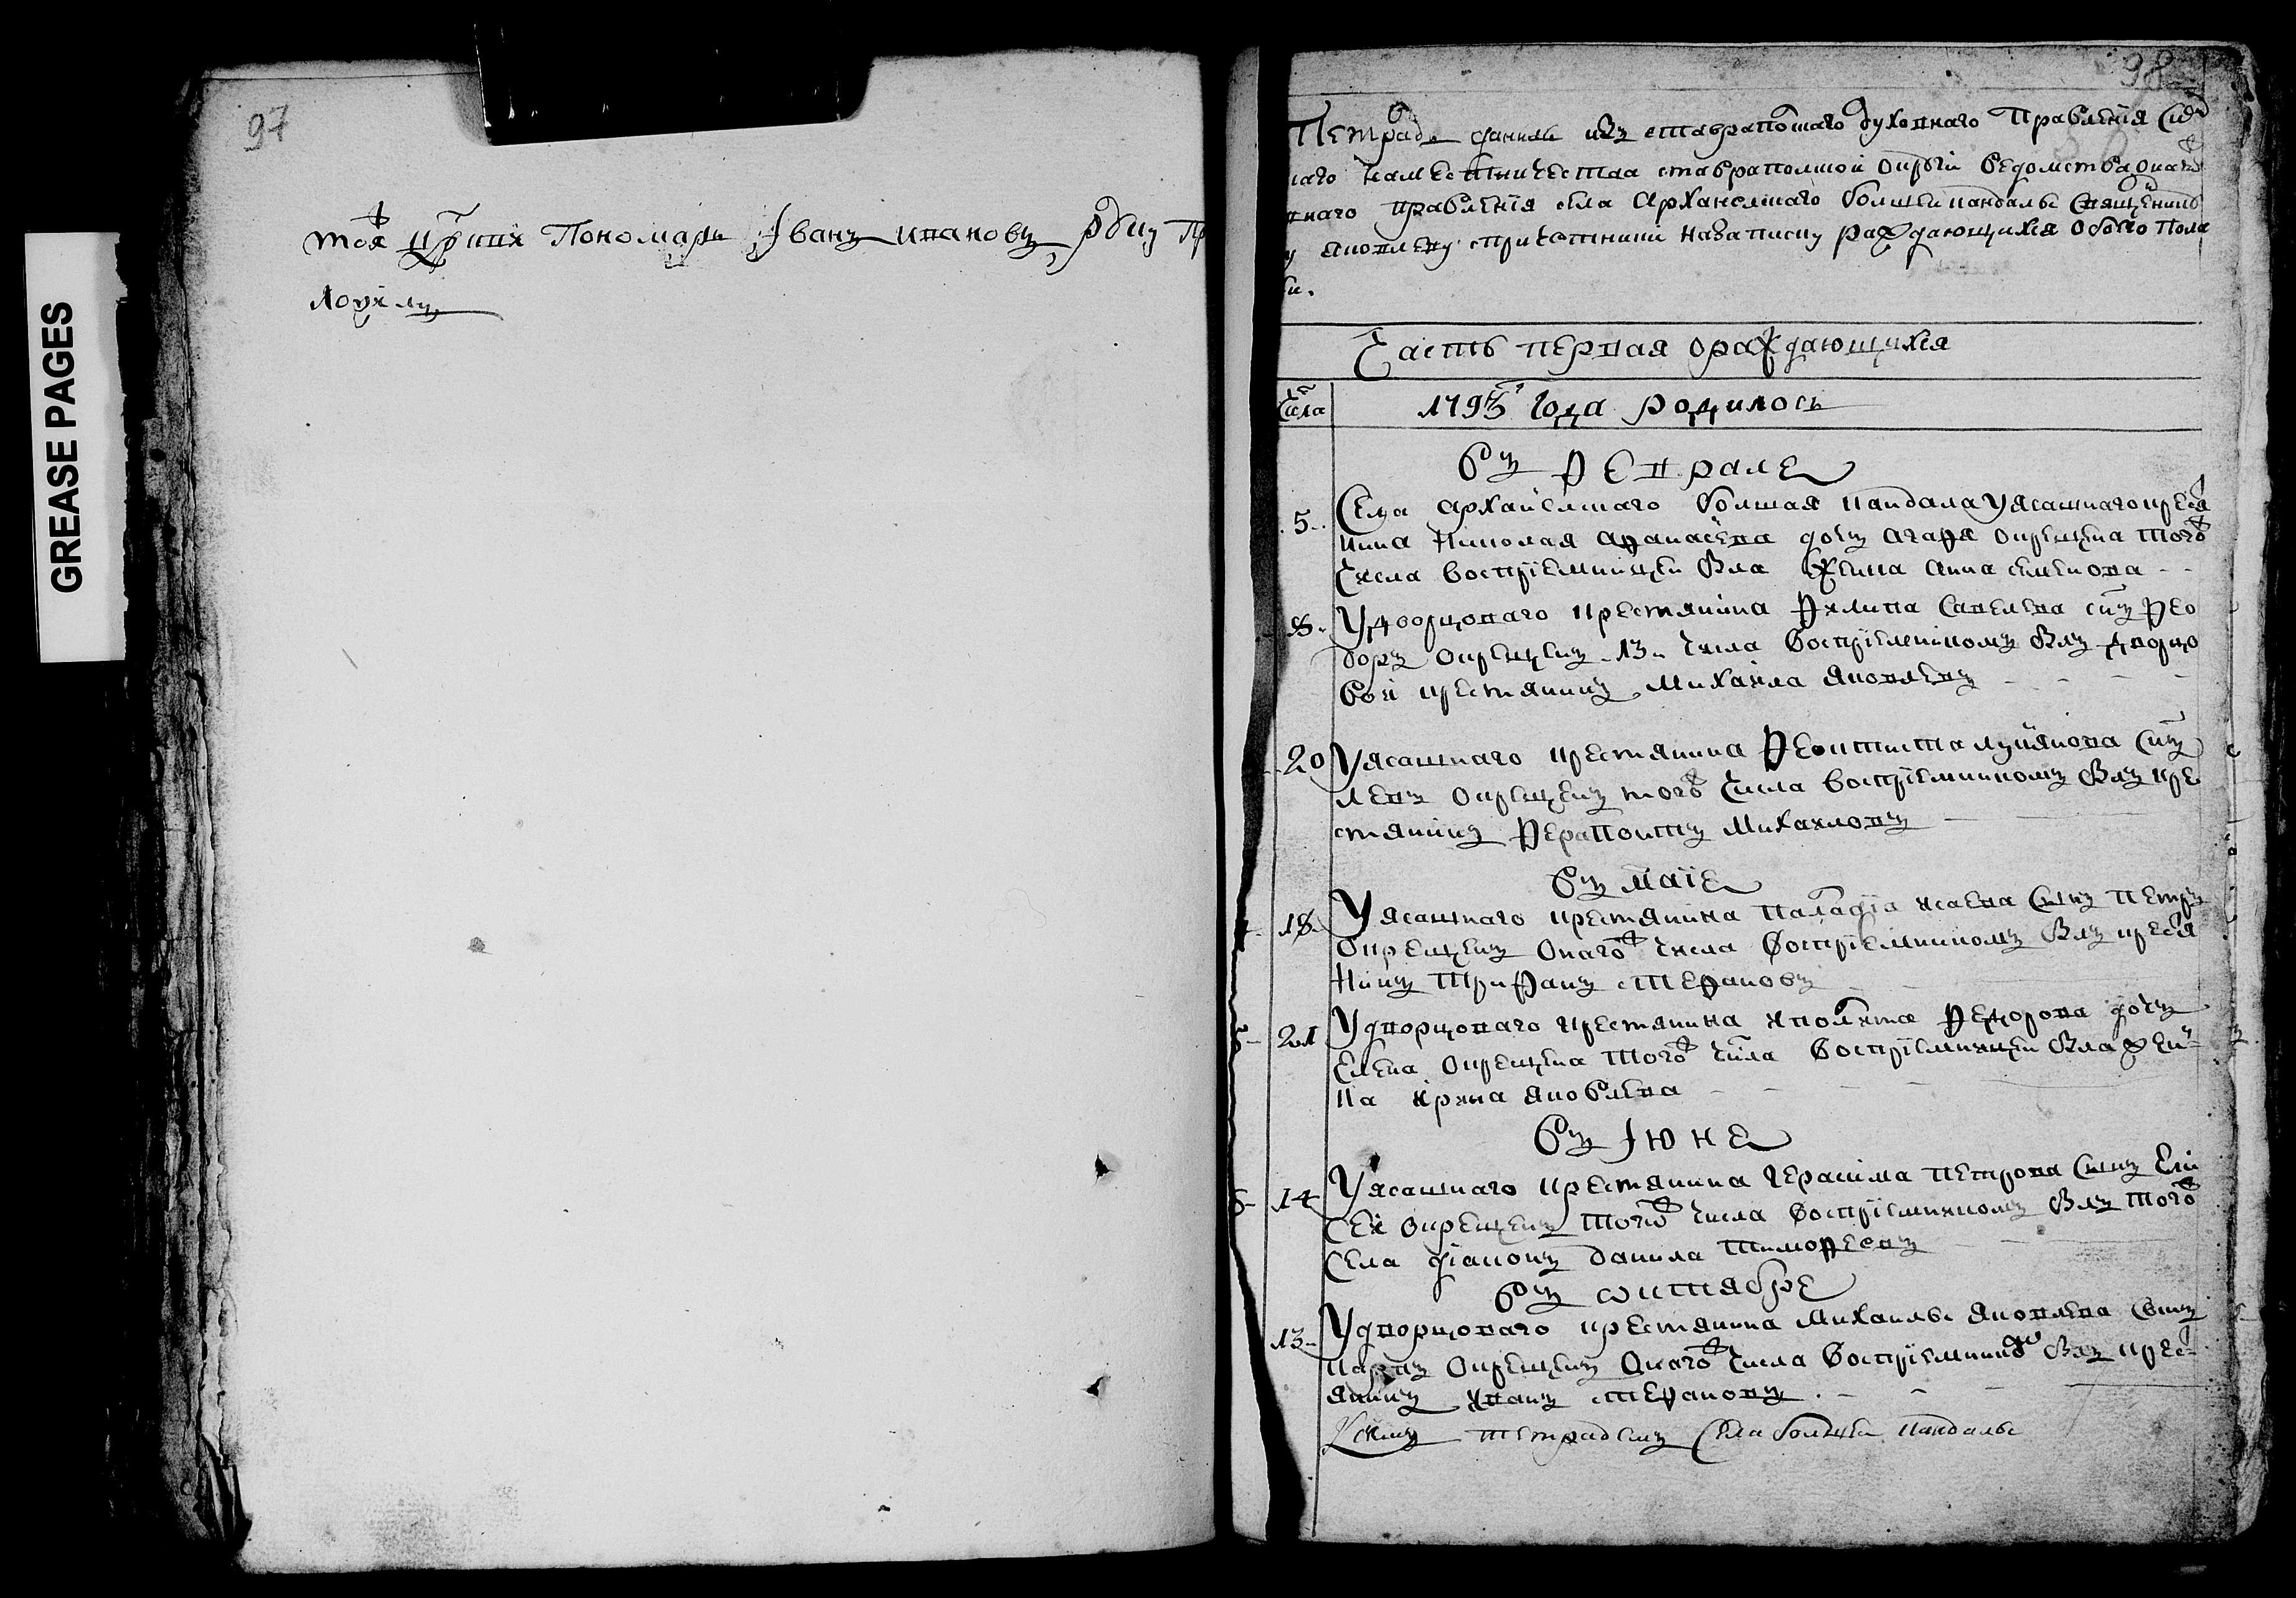 GREASE PAGES
97
тоя церкви Пономарь Іванъ ивановъ
98
Тетрадь данная изъ ставрапольскаго духовнаго Правленія
наместничества ставрапольской округи ведомства онагожъ
правленія села Арханельскаго болшей кандалы Священнику
яковлеву спричетники назаписку раждающихся обоего пола
Часть первая ораждающихся
Числа
179 года родилось
въ Феврале
5 Села арханельскаго болшая кандала Уясашнаго крестья
нина Николая афанасьева дочь агафя окрещена тогожъ
числа восприемницей была жена анна семенова
8 Удворцоваго крестянина Филипа Савельева сынъ Фео
доръ окрещенъ 13 числа восприемникомъ былъ дворцо
вой крестянинъ Михаила яковлевъ
20 Уясашнаго крестянина Феоктиста лукьянова сынъ
левъ окрещенъ тогожъ числа восприемникомъ былъ кре
стянинъ Ферапонтъ Михайловъ
въ маіе
18 Уясашнаго крестянина исаева сынъ петръ
окрещенъ онагожъ числа восприемникомъ былъ крестья
нинъ Трифанъ степановъ
21 Удворцоваго крестянина иполита Федорова дочь
Елена окрещена тогожъ числа восприемницей была жен
на ирина яковлева
въ Іюне
6 14 Уясашнаго крестянина герасима петрова сынъ Ели
сей окрещенъ тогожъ числа восприемникомъ былъ тогожъ
села діаконъ данила тимофеевъ
въ октябре
13 Удворцоваго крестянина михаилы яковлева сынъ
карпъ окрещенъ онагожъ числа восприемникомъ былъ крест
янинъ иванъ степановъ
Ксимъ тетрадемъ Села болшей кандалы